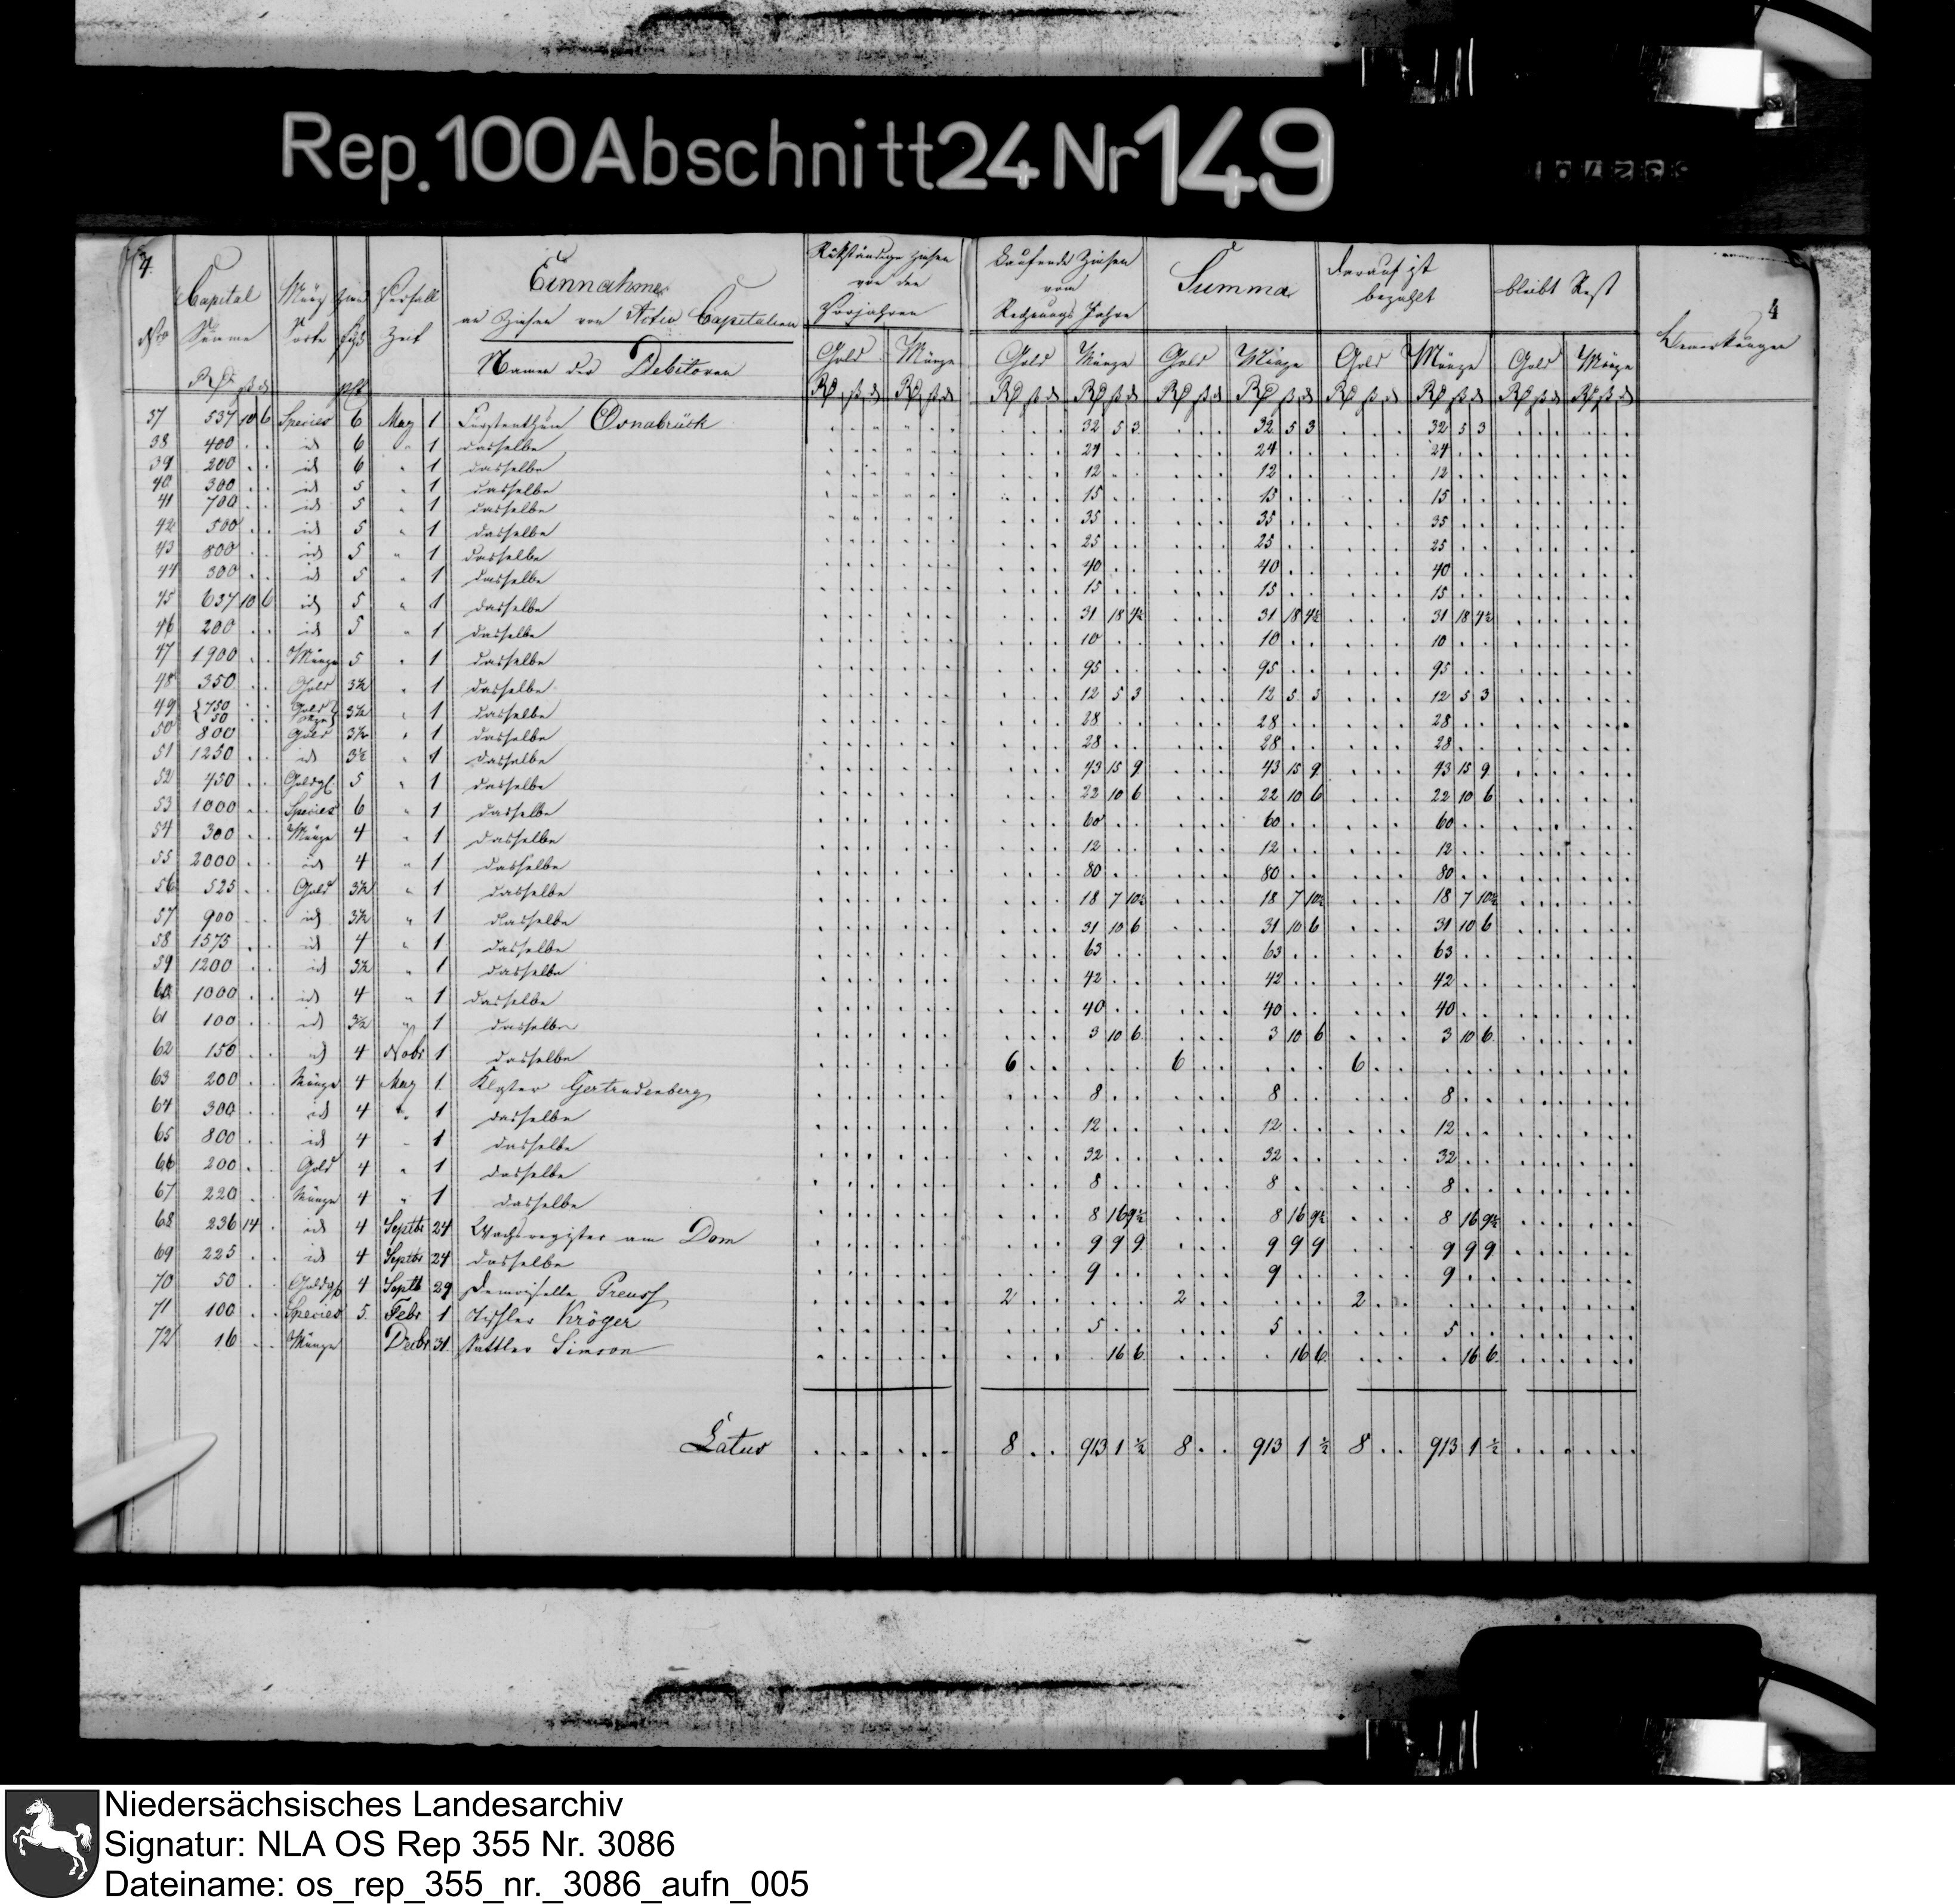 Rep. 100 Abschnitt 24 Nr 149
4
4
Capital Summe
Münz Sorte
Zins Fuß
Verfall Zeit
Einnahme
an Zinsen von Activ Capitalien
Namen der Debitoren
Rükständige Zinsen von den Vorjahren
Laufende Zinsen vom Rechnungs Jahre
Summa
Darauf ist bezahlt
bleibt Rest
Bemerkungen
Gold Münze Gold Münze Gold Münze Gold Münze Gold Münze
37 537 10 6 Species 6 May 1 Fürstenthum Osnabrück 32 5 3 32 5 3 32 5 3
38 400 . . id 6 " 1 dasselbe 24 . . 24 . . 24 . .
39 200 . . id 6 " 1 dasselbe 12 . . 12 . . 12 . .
40 300 . . id 5 " 1 dasselbe 15 . . 15 . . 15 . .
41 700 . . id 5 " 1 dasselbe 35 . . 35 . . 35 . .
42 500 . . id 5 " 1 dasselbe 25 . . 25 . . 25 . .
43 800 . . id 5 " 1 dasselbe 40 . . 40 . . 40 . .
44 300 . . id 5 " 1 dasselbe 15 . . 15 . . 15 . .
45 637 10 6 id 5 " 1 dasselbe 31 18 4½ 31 18 4½ 31 18 4½
46 200 . . id 5 " 1 dasselbe 10 . . 10 . . 10 . .
47 1900 . . Münze 5 " 1 dasselbe 95 . . 95 . . 95 . .
48 350 . . Gold 3½ " 1 dasselbe 12 5 3 12 5 3 12 5 3
49 { 750 . . Gold } 3½ " 1 dasselbe 28 . . 28 . . 28 . .
50 . . Münze
50 800 . . Gold 3½ " 1 dasselbe 28 . . 28 . . 28 . .
51 1250 . . id 3½ " 1 dasselbe 43 15 9 43 15 9 43 15 9
52 450 . . Goldgl. 5 " 1 dasselbe 22 10 6 22 10 6 22 10 6
53 1000 . . Species 6 " 1 dasselbe 60 . . 60 . . 60 . .
54 300 . . Münze 4 " 1 dasselbe 12 . . 12 . . 12 . .
55 2000 . . id 4 " 1 dasselbe 80 . . 80 . . 80 . .
56 525 . . Gold 3½ " 1 dasselbe 18 7 10½ 18 7 10½ 18 7 10½
57 900 . . id 3½ " 1 dasselbe 31 10 6 31 10 6 31 10 6
58 1575 . . id 4 " 1 dasselbe 63 . . 63 . . 63 . .
59 1200 . . id 3½ " 1 dasselbe 42 . . 42 . . 42 . .
60 1000 . . id 4 " 1 dasselbe 40 . . 40 . . 40 . .
61 100 . . id 3½ " 1 dasselbe 3 10 6 3 10 6 3 10 6
62 150 . . id 4 Nobr 1 dasselbe 6 . . 6 . . 6 . .
63 200 . . Münze 4 May 1 Kloster Gertrudenberg 8 . . 8 . . 8 . .
64 300 . . id 4 " 1 dasselbe 12 . . 12 . . 12 . .
65 800 . . id 4 " 1 dasselbe 32 . . 32 . . 32 . .
66 200 . . Gold 4 " 1 dasselbe 8 . . 8 . . 8 . .
67 220 . . Münze 4 " 1 dasselbe 8 16 9½ 8 16 9½ 8 16 9½
68 236 14 . id 4 Septbr 24 Wachsregister am Dom 9 9 9 9 9 9 9 9 9
69 225 . . id 4 Septbr 24 dasselbe 9 . . 9 . . 9 . .
70 50 . . Goldgl 4 Septb 29 Demoiselle Preuss 2 . . 2 . . 2 . .
71 100 . . Species 5 Febr 1 Tischler Kröger 5 . . 5 . . 5 . .
72 16 . . Münze Decbr 31 Sattler Simson . 16 6 . 16 6 . 16 6
Latus 8 . . 913 1 ½ 8 . . 913 1 ½ 8 . . 913 1 ½
Niedersächsisches Landesarchiv
Signatur: NLA OS Rep 355 Nr. 3086
Dateiname: os_rep_355_nr._3086_aufn_005